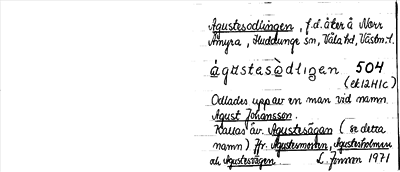 Agustesodlingen, f.d. åker å Norr
Myra, Huddunge sn, Våla hd, Västm. l.
águstesòdlıŋen 504
(ek12H1c)
Odlades upp av en man vid namn
Agust Johansson.
Kallas äv. Agustesägan (se detta
namn) Jfr. Agustesmossen, Agustesholmen
och Agustesvägen L. Jonson 1971